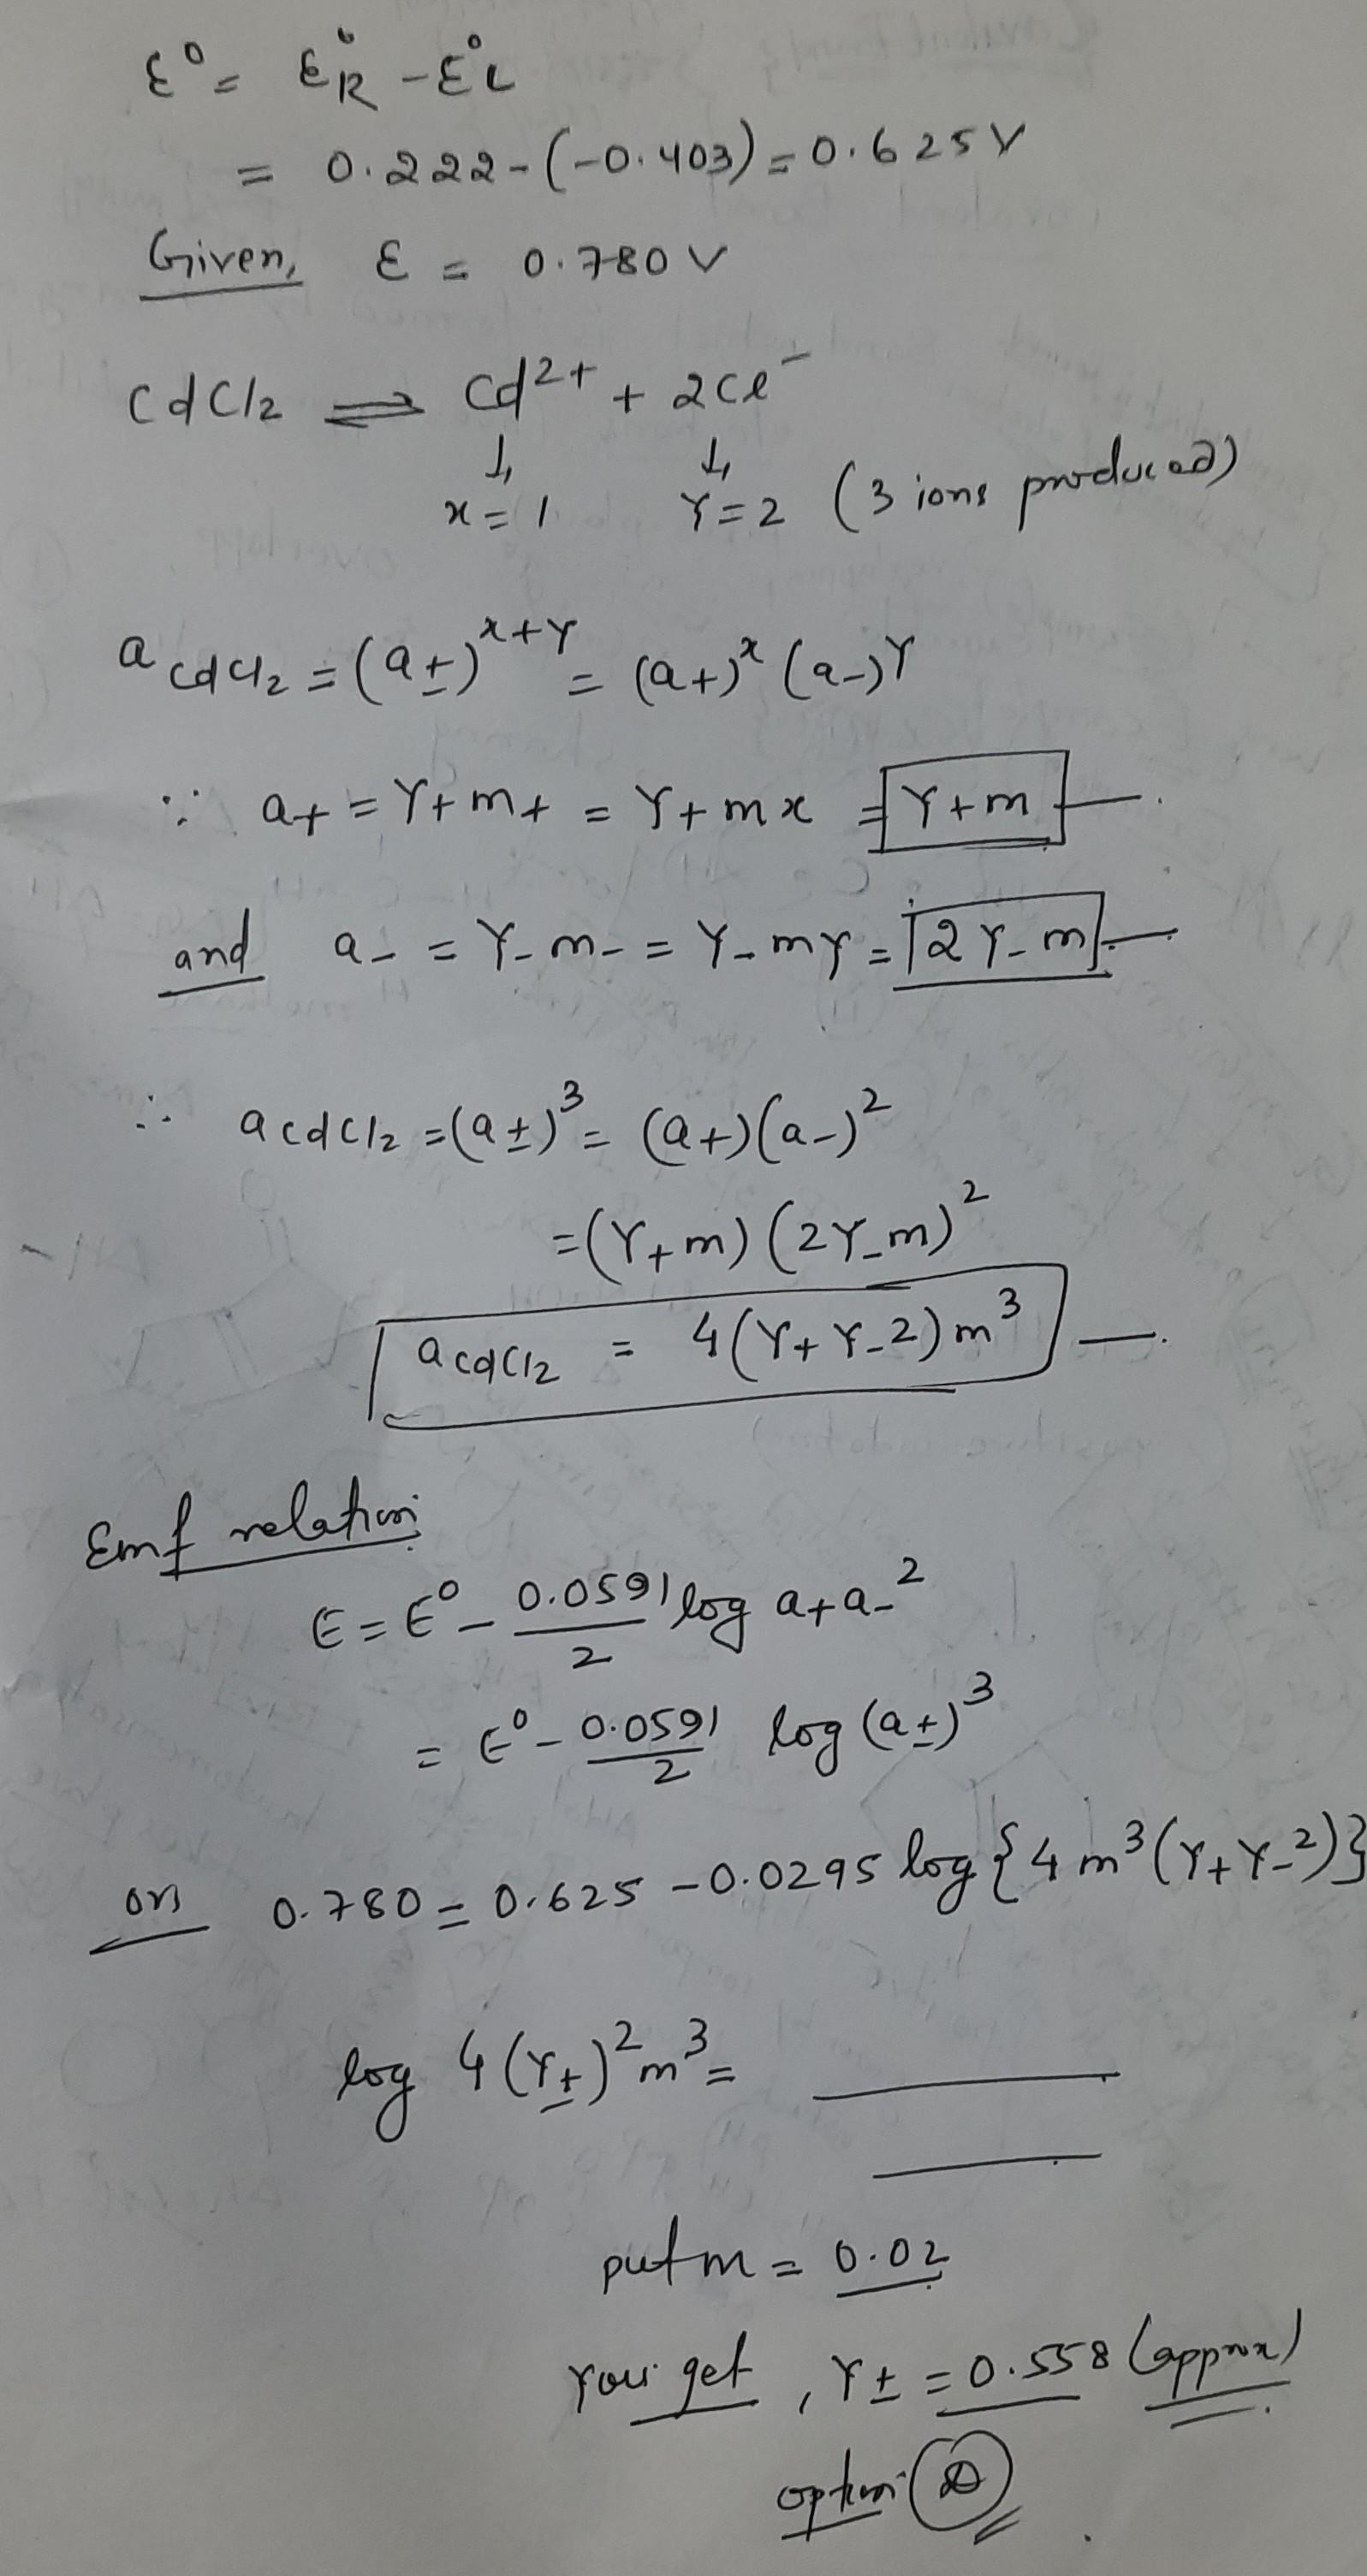 ε° = ε°R - ε°L
= 0.222 - (-0.403) = 0.625 V
Given, ε = 0.780 V
CdCl2 ⇌ Cd²⁺ + 2Cl⁻
↓ ↓
x = 1 Y = 2 (3 ions produced)
a CdCl2 = (a±)^x+Y = (a+)^x (a-)^Y
∵ a+ = Y+ m+ = Y+ m x = Y+ m
and a- = Y- m- = Y- m Y = 2 Y- m
∴ a CdCl2 = (a±)³ = (a+)(a-)²
= (Y+ m) (2Y- m)²
a CdCl2 = 4 (Y+ Y-2) m³
Emf relation
E = E° - 0.0591/2 log a+ a-²
= E° - 0.0591/2 log (a±)³
or 0.780 = 0.625 - 0.0295 log {4 m³ (Y+ Y-2)}
log 4 (Y±)² m³ =
put m = 0.02
You get, Y± = 0.558 (approx)
option D